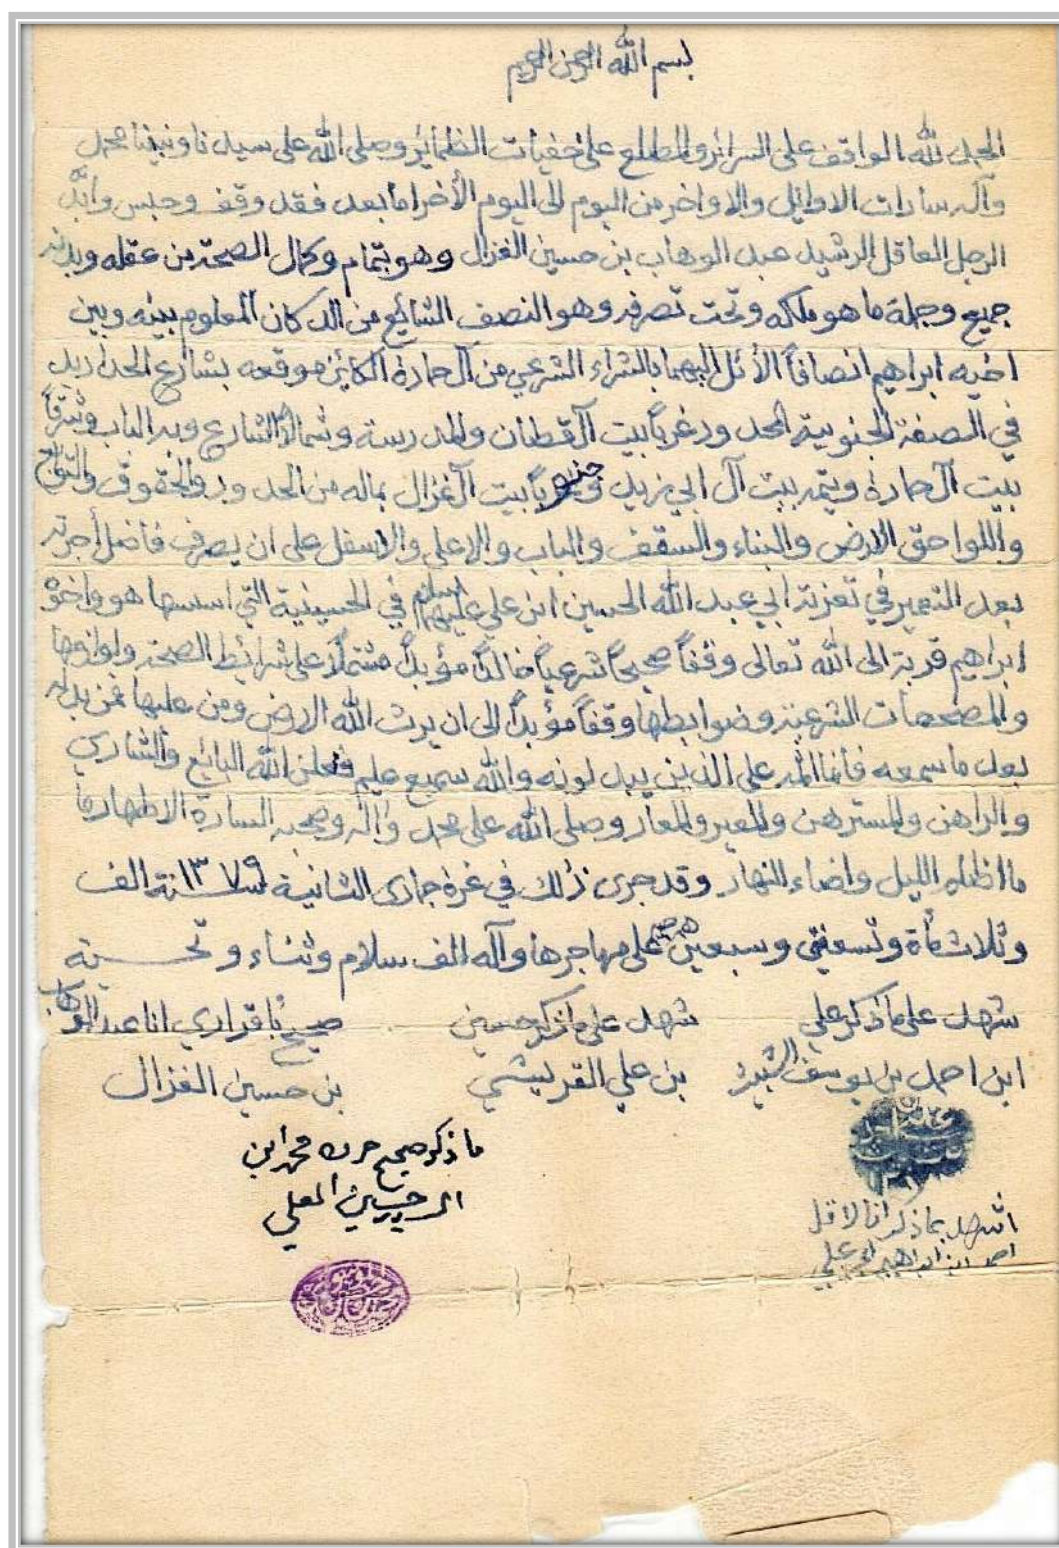 بسم الله الرحمن الرحيم
الحمد لله الواقف على السرائر والمطلع على خفيات الظمائر وصلى الله على سيدنا ونبينا محمد
وآله سادات الاوائل والاواخر من اليوم الى اليوم الأخر اما بعد فقد وقف وحبس وأبّد
الرجل العاقل الرشيد عبد الوهاب بن حسين الغزال وهو بتمام وكمال الصحة من عقله وبدنه
جميع وجملة ما هو ملكه وتحت تصرفه وهو النصف الشائع من الدكان المعلوم بينه وبين
اخيه ابراهيم انصافاً الأئل اليهما بالشراء الشرعي من آل حمادة الكائن موقعه بشارع الحداديد
في الصفة الجنوبية المحدود غرباً بيت آل قطان والمدرسة وشمالاً الشارع وبه الباب وشرقاً
بيت آل حمادة ويتمه بيت آل ابي زيد وجنوباً بيت آل غزال بماله من الحدود والحقوق والتوابع
واللواحق الارض والبناء والسقف والباب والاعلى والاسفل على ان يصرف فاضل أجرته
بعد التعمير في تعزية ابي عبد الله الحسين ابن علي عليهم السلام في الحسينية التي اسسها هو واخوه
ابراهيم قربة الى الله تعالى وقفاً صحيحاً شرعياً خالداً مؤبداً مشتملاً على شرائط الصحة ولوازمها
والمصححات الشرعية وضوابطها وقفاً مؤبداً الى ان يرث الله الارض ومن عليها فمن بدله
بعد ما سمعه فأنما اثمه على الذين يبدلونه والله سميع عليم فلعن الله البائع والشاري
والراهن والمسترهن والمعير والمعار وصلى الله على محمد وآله وصحبه السادة الاطهار ما
ما اظلم الليل واضاء النهار وقد جرى ذلك في غرة جمادى الثانية لسنة ١٣٧٩ الف
وثلاثمأة وتسعة وسبعين هجرية على مهاجرها وآله الف سلام وثناء وتحية
شهد على ما ذكر علي شهد على ما ذكر حسين صحيح بأقراري انا عبد الوهاب
ابن احمد بن يوسف بن علي القريشي بن حسين الغزال
ما ذكر صحيح حرره محمد ابن
حسين العلي
اشهد بما ذكر انا الاقل
احمد ابن ابراهيم